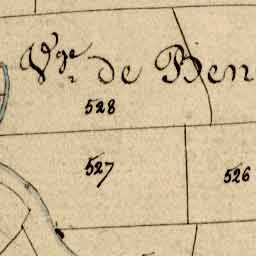 Vge de Ben
528
527
526